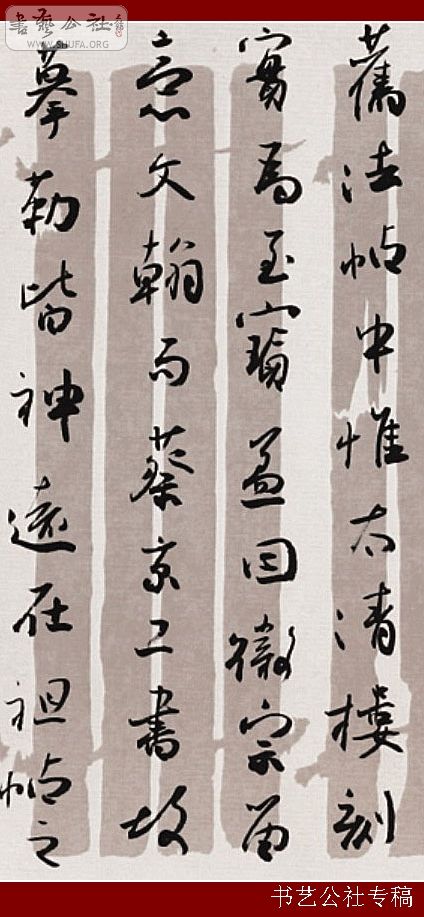 書藝公社
WWW.SHUFA.ORG
舊法帖中惟太清樓刻
實為至寶蓋因徽宗留
意文翰而蔡京工書故
摹勒皆神遠在祖帖之
书艺公社专稿